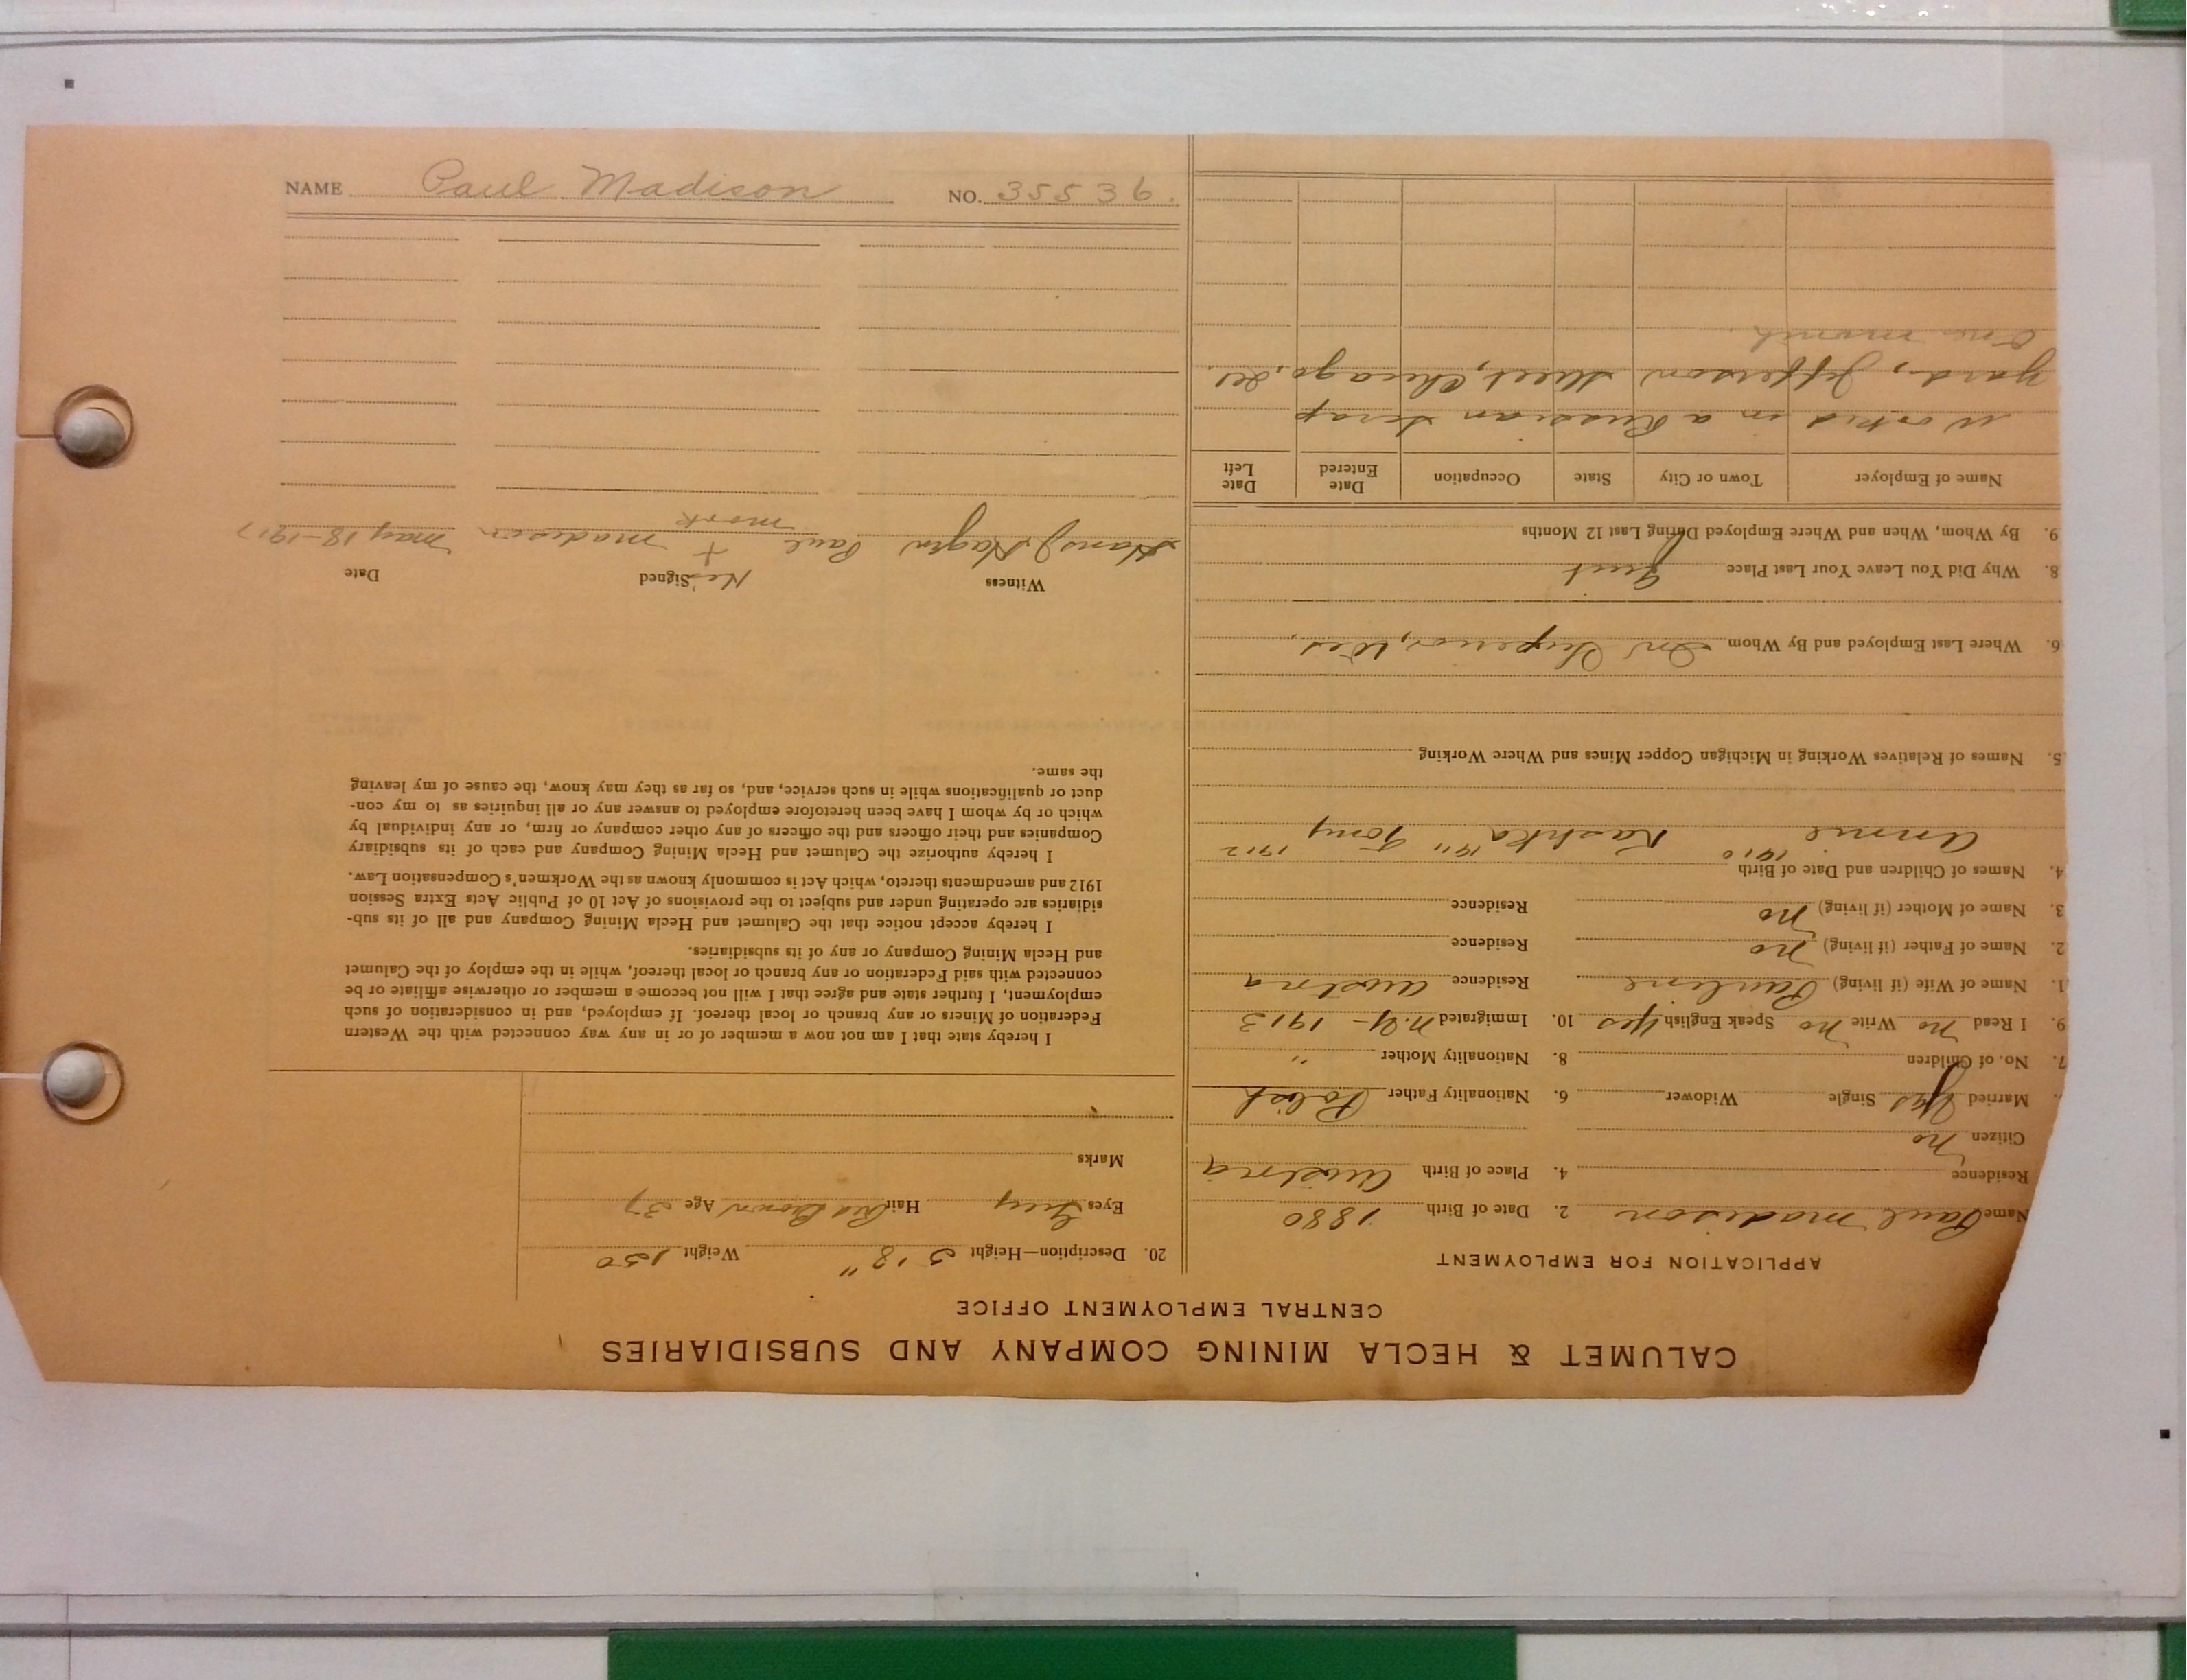 CALUMET & HECLA MINING COMPANY AND SUBSIDIARIES
CENTRAL EMPLOYMENT OFFICE
APPLICATION FOR EMPLOYMENT
Name Paul Madison 2. Date of Birth 1880
Residence 4. Place of Birth Austria
Citizen no
Married Yes Single Widower 6. Nationality Father Polish
7. No. of Children 8. Nationality Mother "
9. I Read no Write no Speak English Yes 10. Immigrated N.Y- 1913
1. Name of Wife (if living) Pauline Residence Austria
2. Name of Father (if living) no Residence
3. Name of Mother (if living) no Residence
4. Names of Children and Date of Birth
Annie 1910 Kashka 1911 Tony 1912
5. Names of Relatives Working in Michigan Copper Mines and Where Working
6. Where Last Employed and By Whom In Superior, Wis
8. Why Did You Leave Your Last Place Quit
9. By Whom, When and Where Employed During Last 12 Months
Name of Employer Town or City State Occupation Date Entered Date Left
Worked in a Russian Scrap
yard, Jefferson Street, Chicago, Ill.
One month.
20. Description—Height 5' 8" Weight 150
Eyes Grey Hair Red Brown Age 37
Marks
I hereby state that I am not now a member of or in any way connected with the Western
Federation of Miners or any branch or local thereof. If employed, and in consideration of such
employment, I further state and agree that I will not become a member or otherwise affiliate or be
connected with said Federation or any branch or local thereof, while in the employ of the Calumet
and Hecla Mining Company or any of its subsidiaries.
I hereby accept notice that the Calumet and Hecla Mining Company and all of its sub-
sidiaries are operating under and subject to the provisions of Act 10 of Public Acts Extra Session
1912 and amendments thereto, which Act is commonly known as the Workmen's Compensation Law.
I hereby authorize the Calumet and Hecla Mining Company and each of its subsidiary
Companies and their officers and the officers of any other company or firm, or any individual by
which or by whom I have been heretofore employed to answer any or all inquiries as to my con-
duct or qualifications while in such service, and, so far as they may know, the cause of my leaving
the same.
Witness His Signed Date
Hans J Hagen Paul + Madison May 18-1917
mark
NAME Paul Madison NO. 35536.